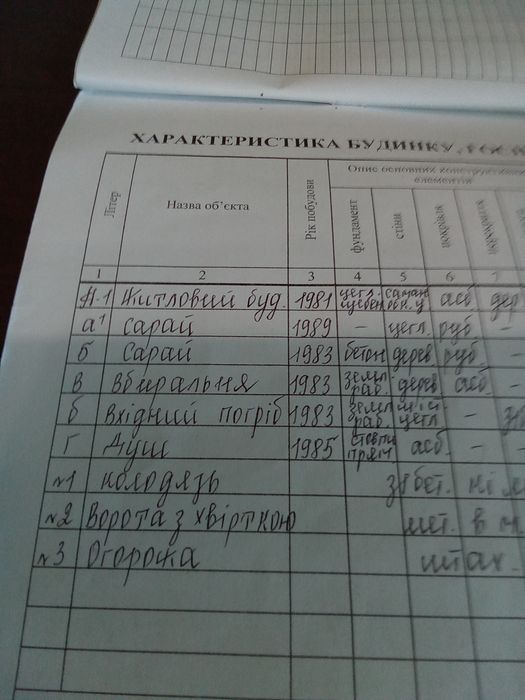 ХАРАКТЕРИСТИКА БУДИНКУ,
Літер Назва об'єкта Рік побудови Опис основних конструктивних елементів
фундамент стіни покрівля перекриття
1 2 3 4 5 6 7
А-1 Житловий буд. 1981 цегл. щебен саман обк. ц асб дер
а¹ сарай 1989 – цегл. руб –
Б Сарай 1983 бетон дерев руб. –
В вбиральня 1983 земл. рав. дерев асб. –
б вхідний погріб 1983 земл рав. цегл –
Г Душ 1985 стовпи асб. – –
№1 колодязь зб бет.
№2 Ворота з хвірткою мет. в м.
№3 Огорожа штах.